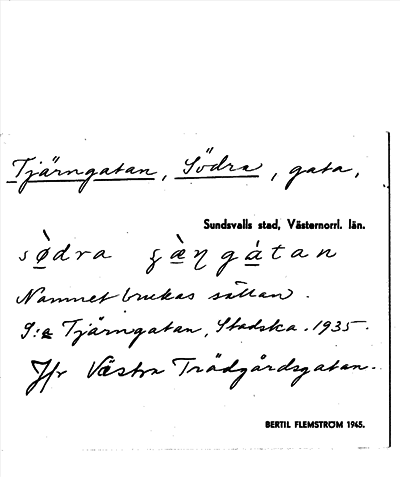 Tjärngatan, Södra, gata,
Sundsvalls stad, Västernorrl. län.
sø̀dra ʂæ̀ŋgàtan
Namnet brukas sällan.
S:a Tjärngatan, Stadska. 1935.
Jfr Västra Trädgårdsgatan.
BERTIL FLEMSTRÖM 1965.